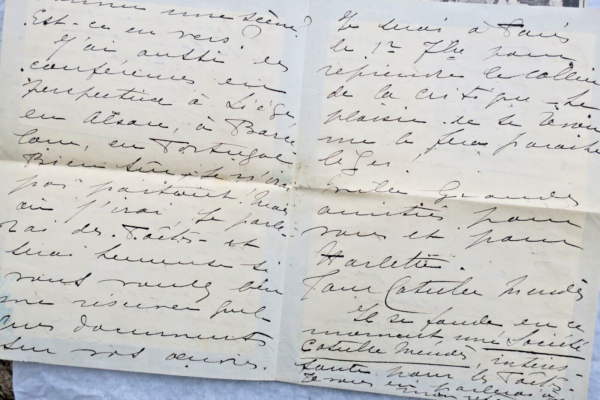 donner une scène?
Est-ce en vers?
J'ai aussi des
conférences en
Perspective à Liège
en Alsace, à Barce
lone, en Portugal
Bien sûr je n'irai
pas partout. Mais
où j'irai je parle-
rai des Poètes - et
serai heureuse si
vous voulez bien
me réserver quel
ques documents
sur vos œuvres.
Je serai à Paris
le 1er 7bre pour
reprendre le collier
de la critique - Le
plaisir de se revoir
me le fera paraître
léger!
Mille grandes
amitiés pour
vous et pour
Harlette.
Jane Catulle Mendès
Il se fonde en ce
moment une Société
Catulle Mendès, intéres-
sante pour les Poètes